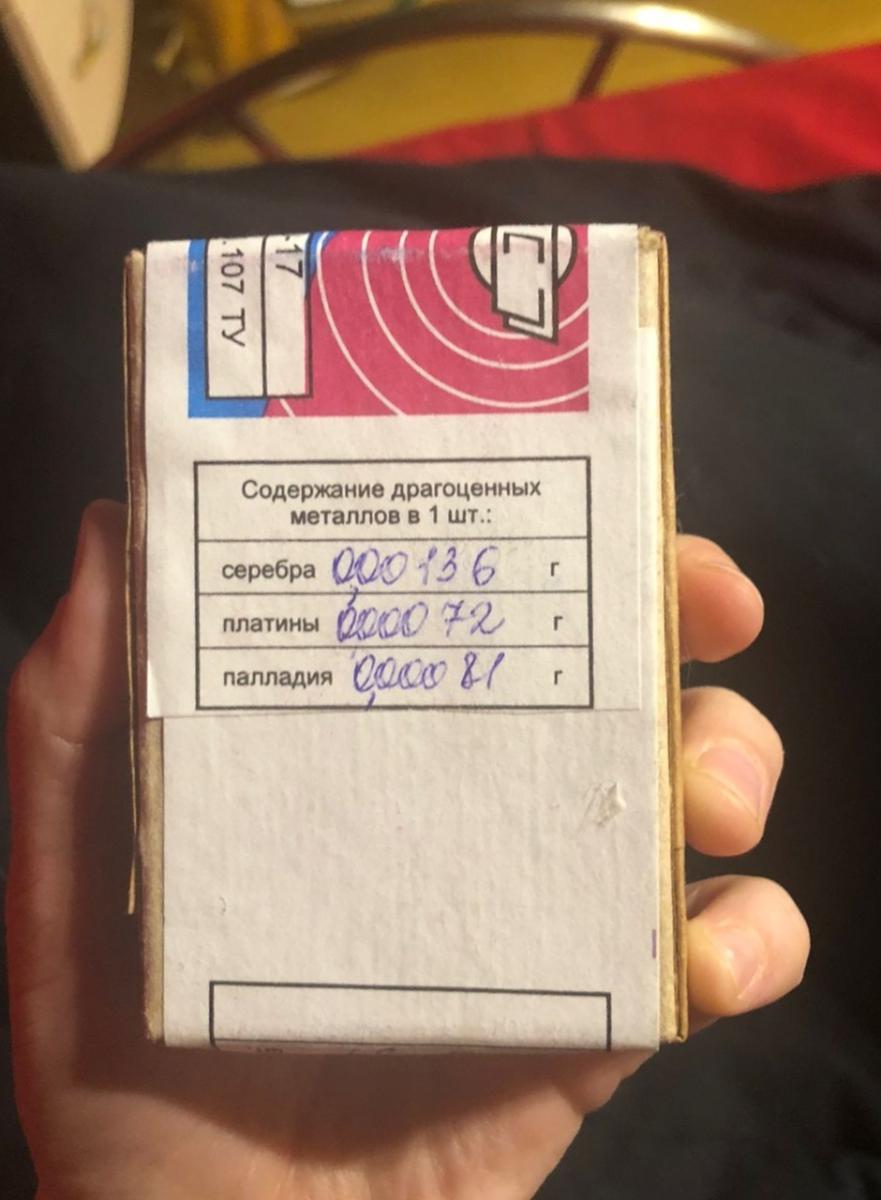 -17
.107 ТУ
Содержание драгоценных
металлов в 1 шт.:
серебра 0,000136 г
платины 0,000072 г
палладия 0,000081 г